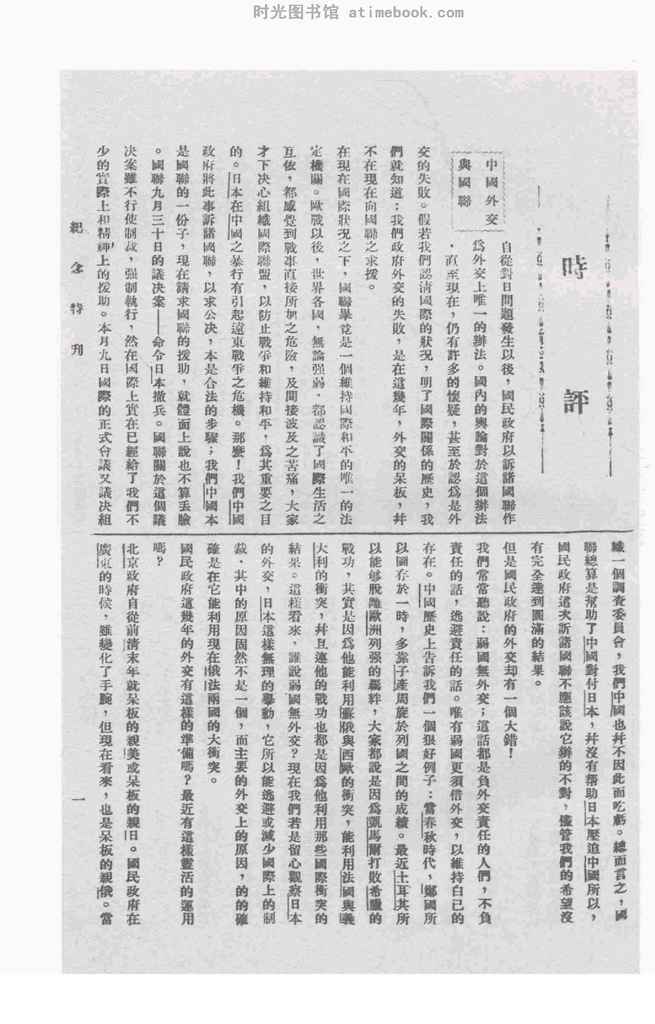 时光图书馆 atimebook.com
時評
中國外交
與國聯
自從對日問題發生以後，國民政府以訴諸國聯作
為外交上唯一的辦法。國內的輿論對於這個辦法
，直至現在，仍有許多的懷疑，甚至於認為是外
交的失敗。假若我們認清國際的狀況，明了國際關係的歷史，我
們就知道：我們政府外交的失敗，是在這幾年，外交的呆板，幷
不在現在向國聯之求援。
在現在國際狀况之下，國聯畢竟是一個維持國際和平的唯一的法
定機關。歐戰以後，世界各國，無論强弱，都認識了國際生活之
互依，都感覺到戰事直接所加之危險，及間接波及之苦痛，大家
才下决心組織國際聯盟，以防止戰爭和維持和平，為其重要之目
的。日本在中國之暴行有引起遠東戰爭之危機。那麼！我們中國
政府將此事訴諸國聯，以求公决，本是合法的步驟；我們中國本
是國聯的一份子，現在請求國聯的援助，就體面上說也不算丢臉
。國聯九月三十日的議决案——命令日本撤兵。國聯關於這個議
决案雖不行使制裁，强制執行，然在國際上實在已經給了我們不
少的實際上和精神上的援助。本月九日國際的正式會議又議决組
織一個調查委員會，我們中國也幷不因此而吃虧。總而言之，國
聯總算是幫助了中國對付日本，幷沒有帮助日本壓迫中國所以，
國民政府這次訴諸國聯不應該說它辦的不對，儘管我們的希望沒
有完全達到圓滿的結果。
但是國民政府的外交却有一個大錯！
我們常常聽說：弱國無外交；這話都是負外交責任的人們，不負
責任的話，逃避責任的話。唯有弱國更須借外交，以維持自己的
存在。中國歷史上告訴我們一個狠好例子：當春秋時代，鄭國所
以圖存於一時，多靠子產周旋於列國之間的成績。最近土耳其所
以能够脫離歐洲列强的羈絆，大家都說是因為凱馬爾打敗希臘的
戰功，其實是因為他能利用蘇俄與西歐的衝突，能利用法國與義
大利的衝突，幷且連他的戰功也都是因為他利用那些國際衝突的
結果。這樣看來，誰說弱國無外交？現在我們若是留心觀察日本
的外交，日本這樣無理的舉動，它所以能逃避或減少國際上的制
裁，其中的原因固然不是一個，而主要的外交上的原因，的的確
確是在它能利用現在俄法兩國的大衝突。
國民政府這幾年的外交有這樣的準備嗎？最近有這樣靈活的運用
嗎？
北京政府自從前清末年就呆板的親美或呆板的親日。國民政府在
廣東的時候，雖變化了手腕，但現在看來，也是呆板的親俄。當
紀念特刊
一